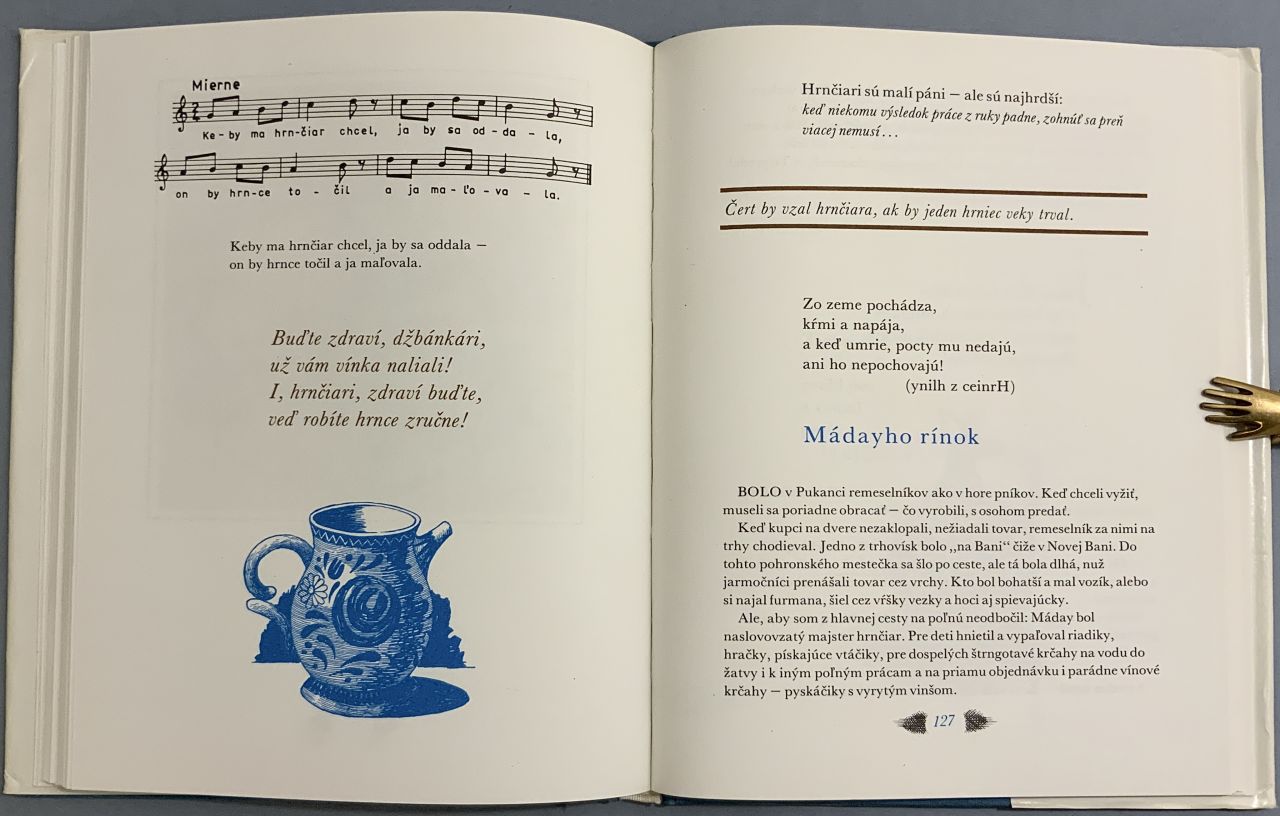 Mierne
Ke-by ma hrn-čiar chcel, ja by sa od-da-la,
on by hrn-ce to-čil a ja ma-ľo-va-la.
Keby ma hrnčiar chcel, ja by sa oddala —
on by hrnce točil a ja maľovala.
Buďte zdraví, džbánkári,
už vám vínka naliali!
I, hrnčiari, zdraví buďte,
veď robíte hrnce zručne!
Hrnčiari sú malí páni — ale sú najhrdší:
keď niekomu výsledok práce z ruky padne, zohnúť sa preň
viacej nemusí...
Čert by vzal hrnčiara, ak by jeden hrniec veky trval.
Zo zeme pochádza,
kŕmi a napája,
a keď umrie, pocty mu nedajú,
ani ho nepochovajú!
(ynilh z ceinrH)
Mádayho rínok
BOLO v Pukanci remeselníkov ako v hore pníkov. Keď chceli vyžiť,
museli sa poriadne obracať — čo vyrobili, s osohom predať.
Keď kupci na dvere nezaklopali, nežiadali tovar, remeselník za nimi na
trhy chodieval. Jedno z trhovísk bolo ,,na Bani“ čiže v Novej Bani. Do
tohto pohronského mestečka sa šlo po ceste, ale tá bola dlhá, nuž
jarmočníci prenášali tovar cez vrchy. Kto bol bohatší a mal vozík, alebo
si najal furmana, šiel cez vŕšky vezky a hoci aj spievajúcky.
Ale, aby som z hlavnej cesty na poľnú neodbočil: Máday bol
naslovovzatý majster hrnčiar. Pre deti hnietil a vypaľoval riadiky,
hračky, pískajúce vtáčiky, pre dospelých štrngotavé krčahy na vodu do
žatvy i k iným poľným prácam a na priamu objednávku i parádne vínové
krčahy — pyskáčiky s vyrytým vinšom.
127